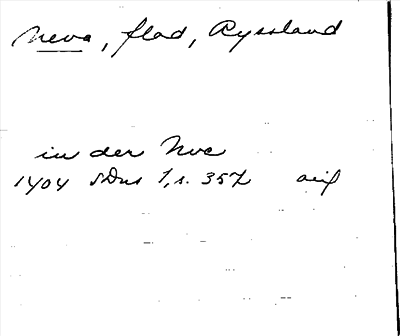 Neva, flod, Ryssland
in der Nve
1404 SDns 1, s. 357 avs